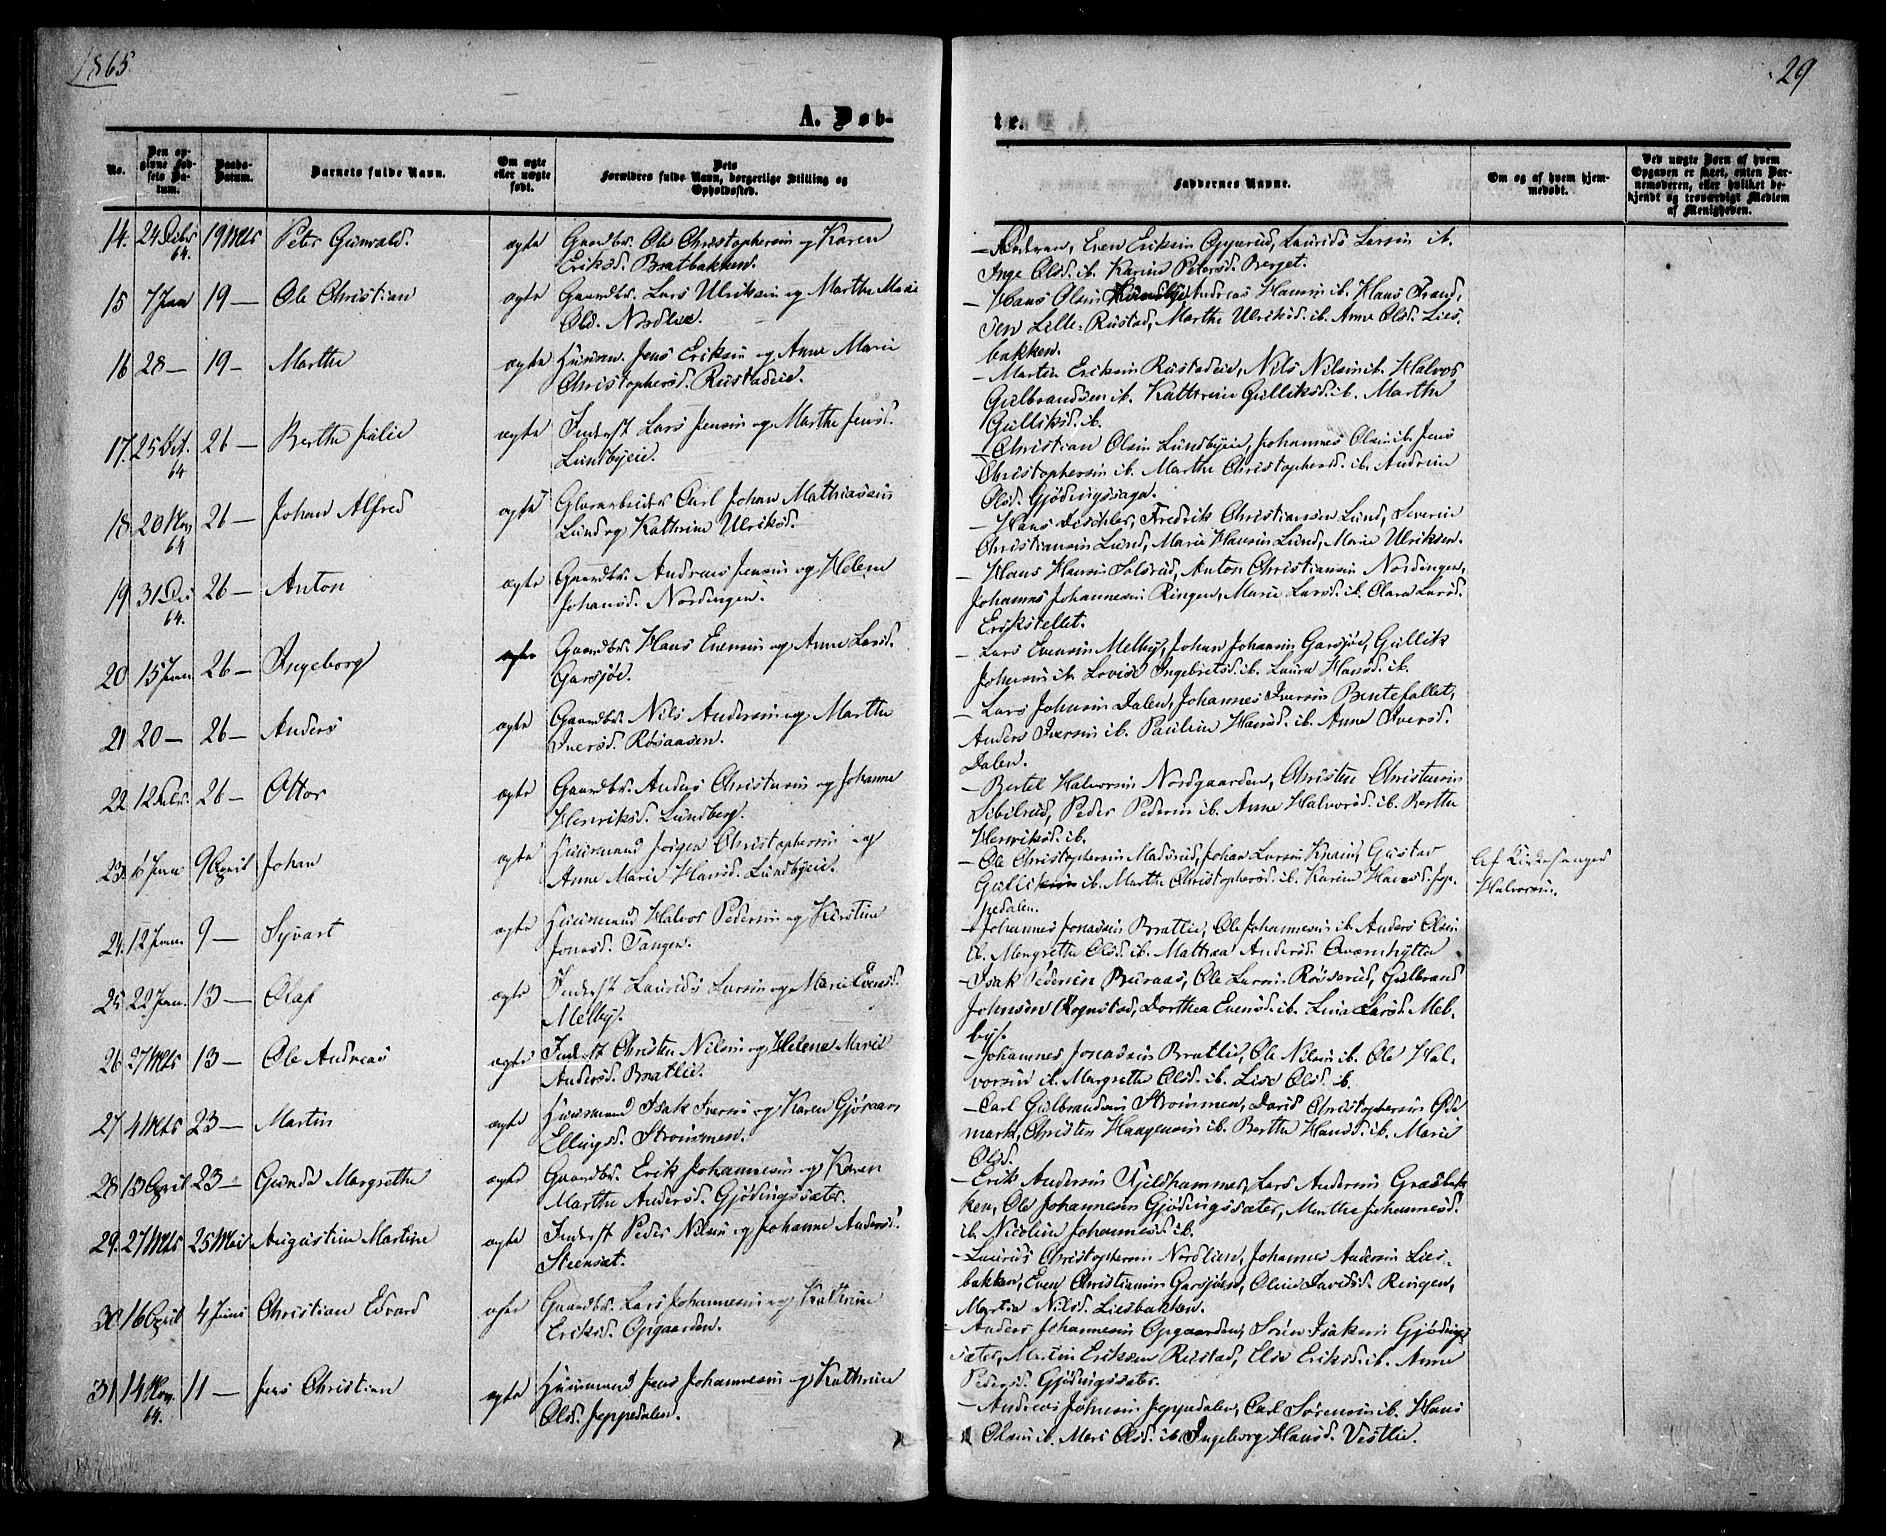 1865.
29
A. Døb-
te.
No.
Den opgivne Fødsels Datum.
Daabs-Datum.
Barnets fulde Navn.
Om ægte eller uægte født.
Dets Forældres fulde Navn, borgerlige Stilling og Opholdssted.
Faddernes Navne.
Om og af hvem hjemmedøbt.
Ved uægte Børn af hvem Opgaven er skeet, enten Barnemoderen, eller hvilket bekjendt og troværdigt Medlem af Menigheden.
14. 24 Debr 64. 19 Mts Peter Gunvald. ægte Gaardbr. Ole Christophersen og Karen
Eriksd. Bratbakken.
Even Eriksen Opperud, Laurids Larsen ib.
Inge Olsd. ib. Karine Petersd. Berget.
15 7 Jan 19 — Ole Christian ægte Gaardbr. Lars Ulriksen og Marthe Marie
Olsd. Nordlie.
— Hans Olsen Andreas Hansen ib. Hans Trand-
sen Lille-Rustad, Marthe Ulriksd. ib. Anne Olsd. Lies-
bakken.
16 28 — 19 — Marthe ægte Husm. Jens Eriksen og Anne Marie
Christophersd. Rustadeie.
— Martin Eriksen Rustadeie, Nils Nilsen ib. Halvor
Gulbrandsen ib. Kathrine Gulliksd. ib. Marthe
Gulliksd. ib.
17. 25 Oct. 64 26 — Berthe Julie ægte Inderst Lars Jensen og Marthe Jensd.
Lundbyeie.
— Christian Olsen Lundbyeie, Johannes Olsen ib. Jens
Christophersen ib. Marthe Christophersd. ib. Andrine
Olsd. Gjødingssaga.
18. 20 Nov 64 26 — Johan Alfred ægte Glasarbeider Carl Johan Mathiassen
Lund og Kathrine Ulriksd.
— Hans Dischler, Fredrik Christiansen Lund, Severin
Christiansen Lund, Marie Hansen Lund, Marie Ulriksen.
19 31 Dec 64. 26 — Anton ægte Gaardbr. Andreas Jensen og Helene
Johansd. Nordengen.
— Hans Hansen Solsrud, Anton Christiansen Nordengen,
Johannes Johannesen Ringen, Marie Larsd. ib. Olava Larsd.
Erikstellet.
20 15 Jan 26 — Ingeborg ægte Gaardbr. Hans Evensen og Anne Larsd.
Garsjøe.
— Lars Evensen Melby, Johan Johansen Garsjøe, Gullik
Johnsen ib. Lovise Ingebretsd. ib. Laura Hansd. ib.
21 20 — 26 — Anders ægte Gaardbr. Nils Andersen og Marthe
Iversd. Røsaasen.
— Lars Johnsen Dalen, Johannes Iversen Bentefallet,
Anders Iversen ib. Pauline Hansd. ib. Anne Iversd.
Dalen.
22 12 Febr. 26 — Ottar ægte Gaardbr. Anders Christensen og Johanne
Henriksd. Lundberg.
— Bertel Halvorsen Nordgaarden, Christen Christensen
Sibilrud, Peder Pedersen ib. Anne Halvorsd. ib. Berthe
Henriksd. ib.
23. 6 Janu 9 April Johan ægte Huusmand Jørgen Christophersen og
Anne Marie Hansd. Lundbyeie.
— Ole Christophersen Madsrud, Johan Larsen Knaiv, Gustav
Gulliksen ib. Marthe Christophersd. ib. Karine Hansd. Jep-
pedalen.
Af Kirkesanger
Halvorsen.
24. 12 Janu. 9 — Syvart ægte Huusmand Halvor Pedersen og Kirstine
Jonasd. Tangen.
— Johannes Jonassen Bratlie, Ole Johannesen ib. Anders Olsen
ib. Mergrethe Olsd. ib. Mathea Andersd. Qvernhytta
25. 22 Janu. 13 — Olaf ægte Inderst Laurids Larsen og Marie Evensd.
Melby.
— Isak Pedersen Buraas, Ole Larsen Røsserud, Gulbrand
Johnsen Rognstad, Dorthea Evensd. ib. Lina Larsd. Mel-
by.
26. 27 Mts 13 — Ole Andreas ægte Inderst Christen Nilsen og Helena Marie
Andersd. Bratlie.
— Johannes Jonassen Bratlie, Ole Nilsen ib. Ole Hal-
vorsen ib. Margrethe Olsd. ib. Lise Olsd. ib.
27 4 Mts 23 — Martin ægte Huusmand Isak Iversen og Karen
Ellingsd. Strømmen.
— Carl Gulbrandsen Strømmen, David Christophersen Øde
mark, Christen Haagensen ib. Berthe Hansd. ib. Marie
Olsd.
28 13 April 23 — Gunda Margrethe ægte Gaardbr. Erik Johannesen og Karen
Marthe Andersd. Gjødingssæter.
— Erik Andersen Fjeldhammer, Lars Andersen Græsbak-
ken, Ole Johannesen Gjødingssæter, Marthe Johannesd.
ib. Nicoline Johannesd. ib.
29. 27 Mts 25 Mai Augustine Martine ægte Inderst Peder Nilsen og Johanne Andersd.
Steensæt.
— Laurids Christophersen Nordlien, Johannes Andersen Lies-
bakken, Even Christiansen Garsjøen, Oline Davidsd. Ringen,
Martia Nilsd. Liesbakken.
30 16 April 4 Juni Christian Edvard ægte Gaardbr. Lars Johannesen og Kathrine
Eriksd. Opgaarden.
— Anders Johannesen Opgaarden, Søren Isaksen Gjødings
sæter, Martin Eriksen Rustad, Else Eriksd. ib. Anne
Pedersd. Gjødingssæter.
31 14 Nov. 64. 11 — Jens Christian ægte Huusmand Jens Johannesen og Kathrine
Olsd. Jeppedalen.
— Andreas Johnsen Jeppedalen, Carl Sørensen ib. Hans
Olsen ib. Mari Olsd. ib. Ingeborg Hansd. Vestlie.